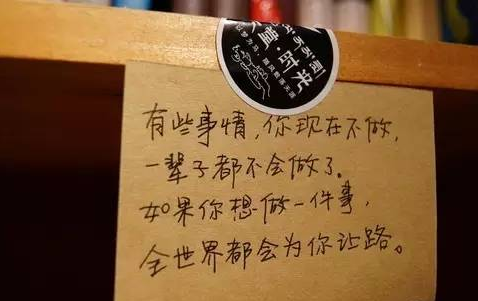 有些事情，你现在不做，
一辈子都不会做了。
如果你想做一件事，
全世界都会为你让路。